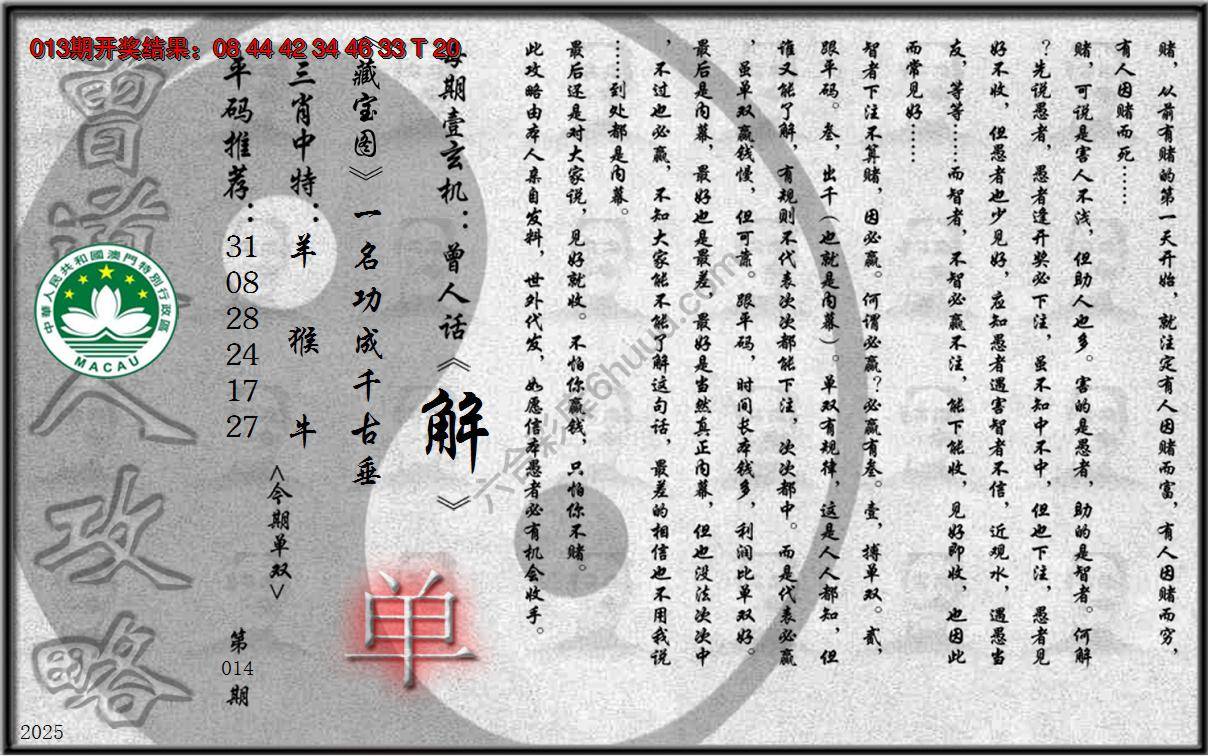 013期开奖结果：08 44 42 34 46 33 T 20
赌，从前有赌的第一天开始，就注定有人因赌而富，有人因赌而穷，
有人因赌而死……
赌，可说是害人不浅，但助人也多。害的是愚者，助的是智者。何解
？先说愚者，愚者逢开奖必下注，虽不知中不中，但也下注，愚者见
好不收，但愚者也少见好，应知愚者遇害智者不信，近观水，遇愚当
友，等等……而智者，不智必赢不注，能下能收，见好即收，也因此
而常见好……
智者下注不算赌，因必赢。何谓必赢？必赢有叁。壹，搏单双。贰，
跟平码。叁，出千（也就是内幕）。单双有规律，这是人人都知，但
谁又能了解，有规则不代表次次都能下注，次次都中。而是代表必赢
，虽单双赢钱慢，但可靠。跟平码，时间长本钱多，利润比单双好。
最后是内幕，最好也是最差，最好是当然真正内幕，但也没法次次中
，不过也必赢，不知大家能不能了解这句话，最差的相信也不用我说
……到处都是内幕。
最后还是对大家说，见好就收。不怕你赢钱，只怕你不赌。
此攻略由本人亲自发料，世外代发，如愿信本愚者必有机会收手。
每期壹玄机：曾人话《解》
《藏宝图》一名功成千古垂
三肖中特：羊 猴 牛
<今期单双>
单
平码推荐：31 08 28 24 17 27
第014期
曾道人攻略
中華人民共和國澳門特別行政區
MACAU
六合彩库6huuu.com
2025